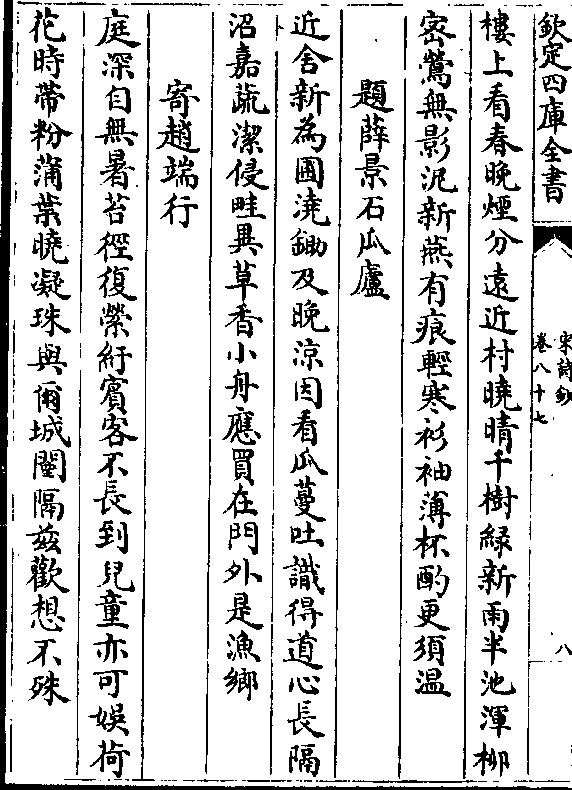 欽定四庫全書
宋詩鈔
卷八十七
八
樓上看春晚煙分遠近村曉晴千樹綠新雨半池渾柳
密鶯無影泥新燕有痕輕寒衫袖薄杯酌更須溫
題薛景石瓜廬
近舍新為圃澆鋤及晚涼因看瓜蔓吐識得道心長隔
沼嘉蔬潔侵畦異草香小舟應買在門外是漁鄉
寄趙端行
庭深自無暑苔徑復縈紆賓客不長到兒童亦可娛荷
花時帶粉蒲葉曉凝珠與爾城闉隔茲歡想不殊